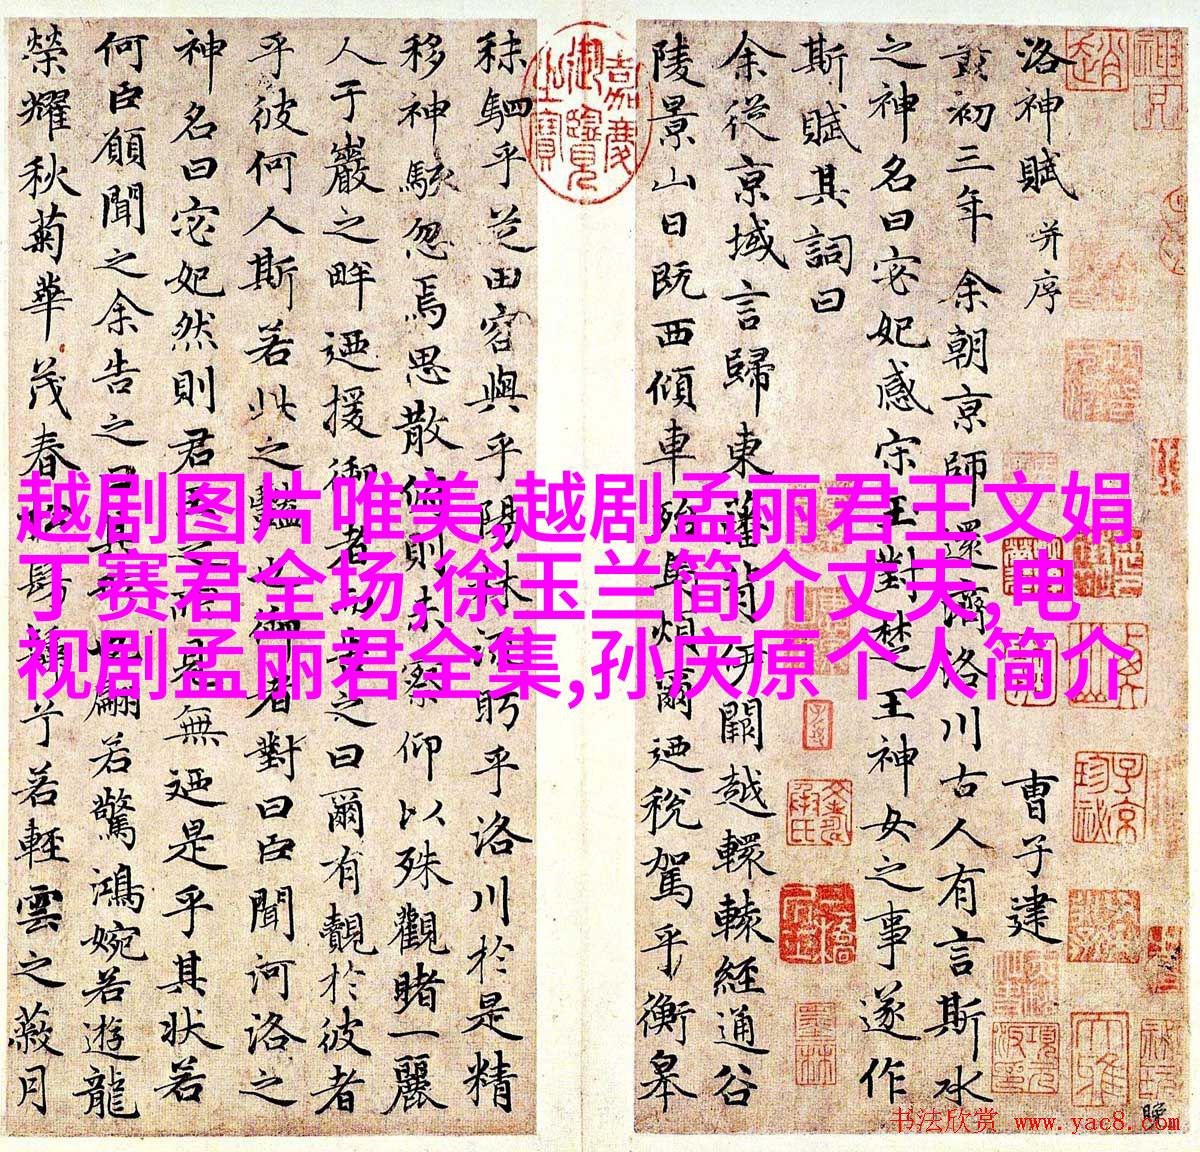 洛神賦 并序
曹子建
黃初三年余朝京師還濟洛川古人有言斯水
之神名曰宓妃感宋玉對楚王神女之事遂作
斯賦其詞曰
余從京域言歸東藩背伊闕越轘轅經通谷
陵景山日既西傾車殆馬煩爾迺稅駕乎衡皋
秣駟乎芝田容與乎陽林流眄乎洛川於是精
移神駭忽焉思散俯則未察仰以殊觀睹一麗
人于巖之畔迺援御者而告之曰爾有覿於彼者
乎彼何人斯若此之豔也御者對曰臣聞河洛之
神名曰宓妃然則君王之所見無迺是乎其狀若
何臣願聞之余告之曰其形也翩若驚鴻婉若遊龍
榮耀秋菊華茂春松髣髴兮若輕雲之蔽月
嘉慶御覽之寶
越剧图片唯美,越剧孟丽君王文娟
丁赛君全场,徐玉兰简介丈夫,电
视剧孟丽君全集,孙庆原个人简介
书法欣赏 www.yac8.com